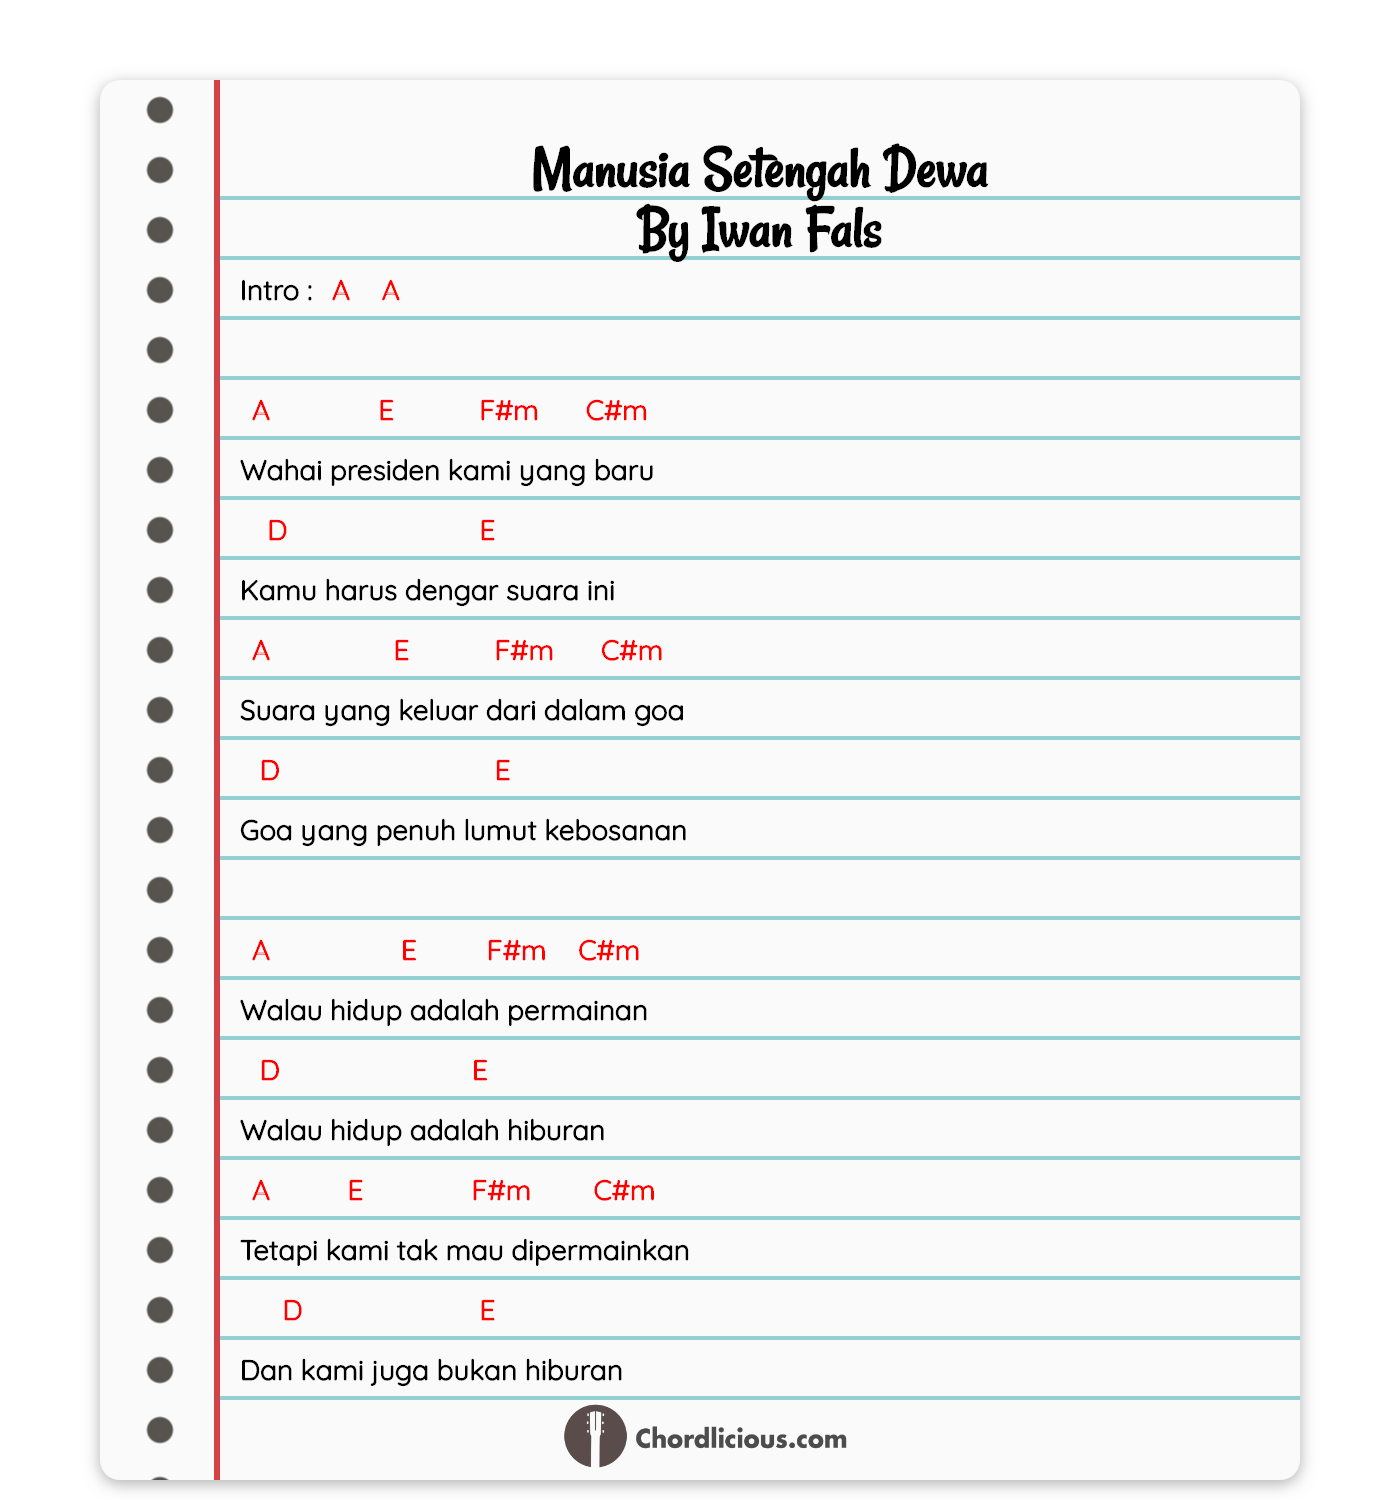 Manusia Setengah Dewa
By Iwan Fals
Intro : A A
A E F#m C#m
Wahai presiden kami yang baru
D E
Kamu harus dengar suara ini
A E F#m C#m
Suara yang keluar dari dalam goa
D E
Goa yang penuh lumut kebosanan
A E F#m C#m
Walau hidup adalah permainan
D E
Walau hidup adalah hiburan
A E F#m C#m
Tetapi kami tak mau dipermainkan
D E
Dan kami juga bukan hiburan
Chordlicious.com